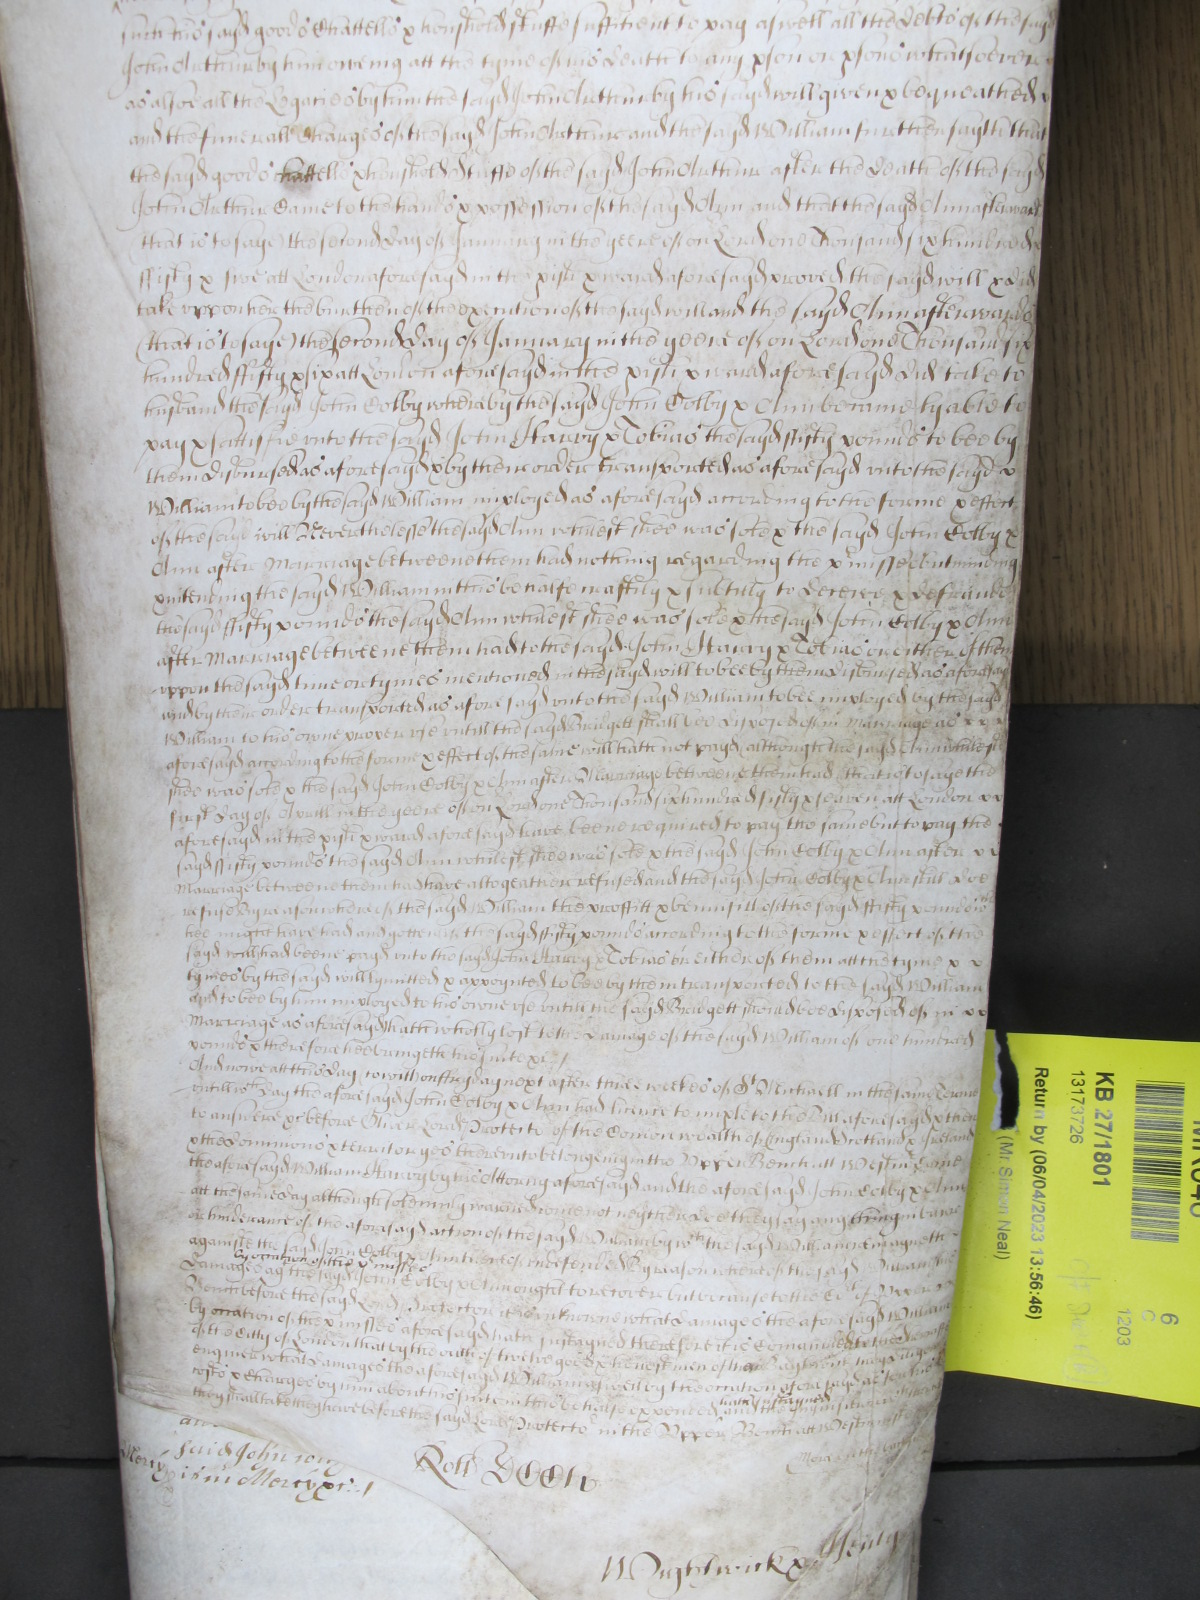 such his sayd goods Chattells & houshold stuffe sufficient to pay aswell all the debts of the sayd
John Arthur by him oweing att the tyme of his death to any pson or psons whatsoever
as alsoe all the Legacies by him the sayd John Arthur by his sayd will given & bequeathed
and the funerall Charges of the sayd John Arthur and the sayd William further sayth that
the sayd goods chattells & houshold stuffe of the sayd John Arthur after the death of the sayd
John Arthur Came to the hands & possession of the sayd Ann and that the sayd Ann afterward
(that is to saye) the second day of January in the yeere of our Lord one Thousand six hundred
ffifty & five att London aforesayd in the pish & ward aforesayd proved the sayd will & did
take uppon her the burthen of the execution of the sayd will and the sayd Ann afterwards
(that is to saye) the second day of January in the yeere of our Lord one Thousand six
hundred ffifty & six att London aforesayd in the pish & ward aforesayd did take to
husband the sayd John Colby whereby the sayd John Colby & Ann became lyable to
pay & sattisfie unto the sayd John Harry & Tobias the sayd ffifty pounds to bee by
them disbursed as aforesayd & by their order transported as aforesayd unto the sayd
William to bee by the sayd William imployed as aforesayd according to the forme & effect
of the sayd will Neverthelesse the sayd Ann whilest shee was sole & the sayd John Colby &
Ann after Marriage betweene them had nothing regarding the pmisses but minding
& intending the sayd William in this behalfe craftily & subtily to deceive & defraude
the sayd ffifty pounds the sayd Ann whilest shee was sole & the sayd John Colby & Ann
after Marriage betweene them had to the sayd John Harry & Tobias or either of them
uppon the sayd time or tymes mentioned in the sayd will to bee by them disbursed as aforesayd
and by their order transported as aforesayd unto the sayd William to bee imployed by the sayd
William to his owne proper use untill the sayd Bridgett shall bee disposed of in Marriage as
aforesayd according to the forme & effect of the same will hath not payd although the sayd Ann whilest
shee was sole & the sayd John Colby & Ann after Marriage betweene them had (that is to saye) the
first day of Aprill in the yeere of our Lord one Thousand six hundred fifty & seaven att London
aforesayd in the pish & ward aforesayd have beene required to pay the same but to pay the
sayd ffifty pounds the sayd Ann whilest shee was sole & the sayd John Colby & Ann after
Marriage betweene them had have altogeather refused and the sayd John Colby & Ann still doe
refuse By reason whereof the sayd William the proffitt & benifitt of the sayd ffifty pounds wch
hee might have had and gotten if the sayd ffifty pounds according to the forme & effect of the
sayd will had beene payd unto the sayd John Harry & Tobias or either of them att the tyme
tymes by the sayd will lymitted & appoynted to bee by them transported to the sayd William
and to bee by him imployed to his owne use untill the sayd Bridgett should bee disposed of in
Marriage as aforesayd hath wholly lost to the damage of the sayd William of one hundred
pounds & therefore hee bringeth his suite &c /
And nowe att this day (to wit) on ffryday next after three weekes of St Michaell in the same Terme
untill wch day the aforesayd John Colby & Ann had licence to imple to the Bill aforesayd & then
to answere &c before Oliver Lord Protector of the Comon wealth of England Scotland & Ireland
& the Dominions & territoryes thereunto belonging in the Upper Bench att Westmr Came
the aforesayd William Harry by his Attorny aforesayd and the aforesayd John Colby & Ann
att the same day although solemnly warned come not neyther doe they say any thing in barre
or hinderance of the aforesayd action of the sayd William by wch the sayd William remayneth
against the sayd John Colby & Ann thereof undefended By reason whereof the sayd William his
by occation of the pmisses
Damages agt the sayd John Colby & Ann ought to recover but because to the Court of Upper
Bench before the sayd Lord Protector it is unknowne what damages the aforesayd William
by occation of the pmisses aforesayd hath sustayned therefore it is Comaunded to the Sheriffs
of the Citty of London that by the oath of twelve good & honest men of their Baylywick they diligently
enquire what damages the aforesayd William aswell by the occation aforesayd as for his
hath sustayned
costs & Charges by him about his suite in this behalfe expended and the inquisition
they shall take they have before the sayd Lord Protector in the Upper Bench att Westminster
said John
Mercy
in Mercy &c /
Roll DCCLv
Wightwick &
Henly
KB 27/1801
13173726
Return by (06/04/2023 13:56:46)
(Mr Simon Neal)
6
C
1203